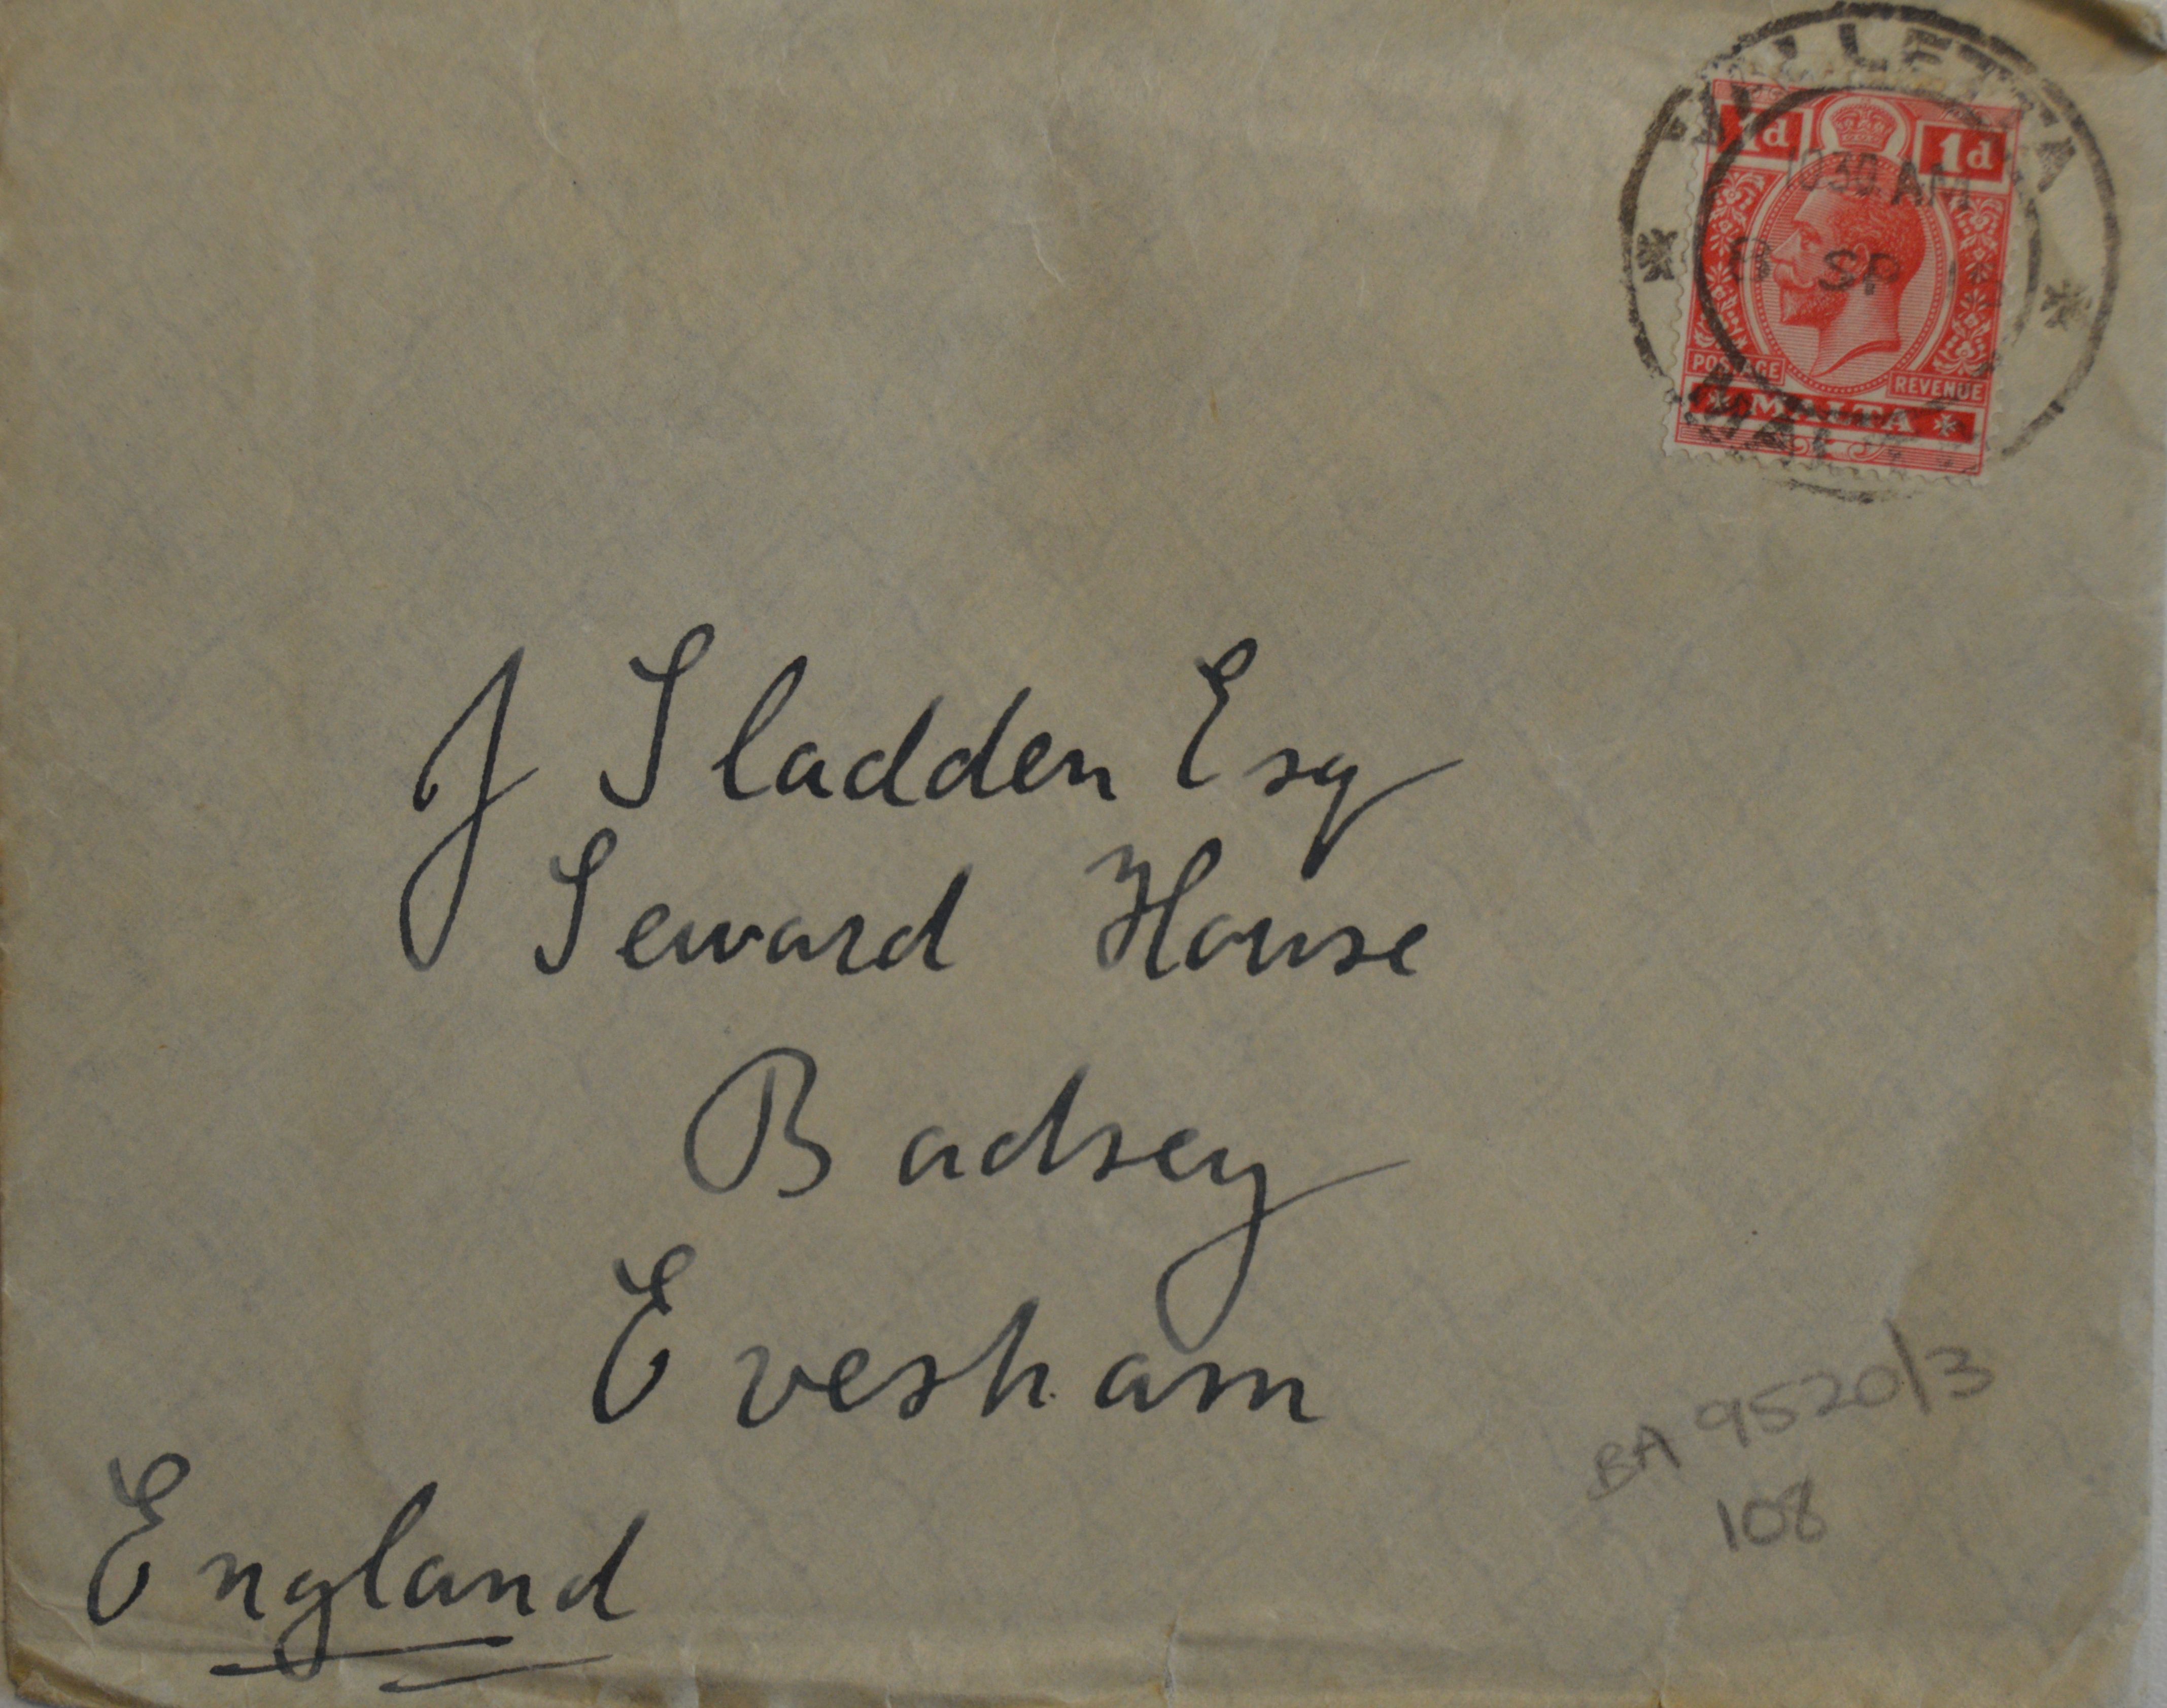 VALLETTA
1d 1d
10 30 AM
8 SP
POSTAGE REVENUE
MALTA
MALTA
J Sladden Esq
Seward House
Badsey
Evesham
England
BA 9520/3
108